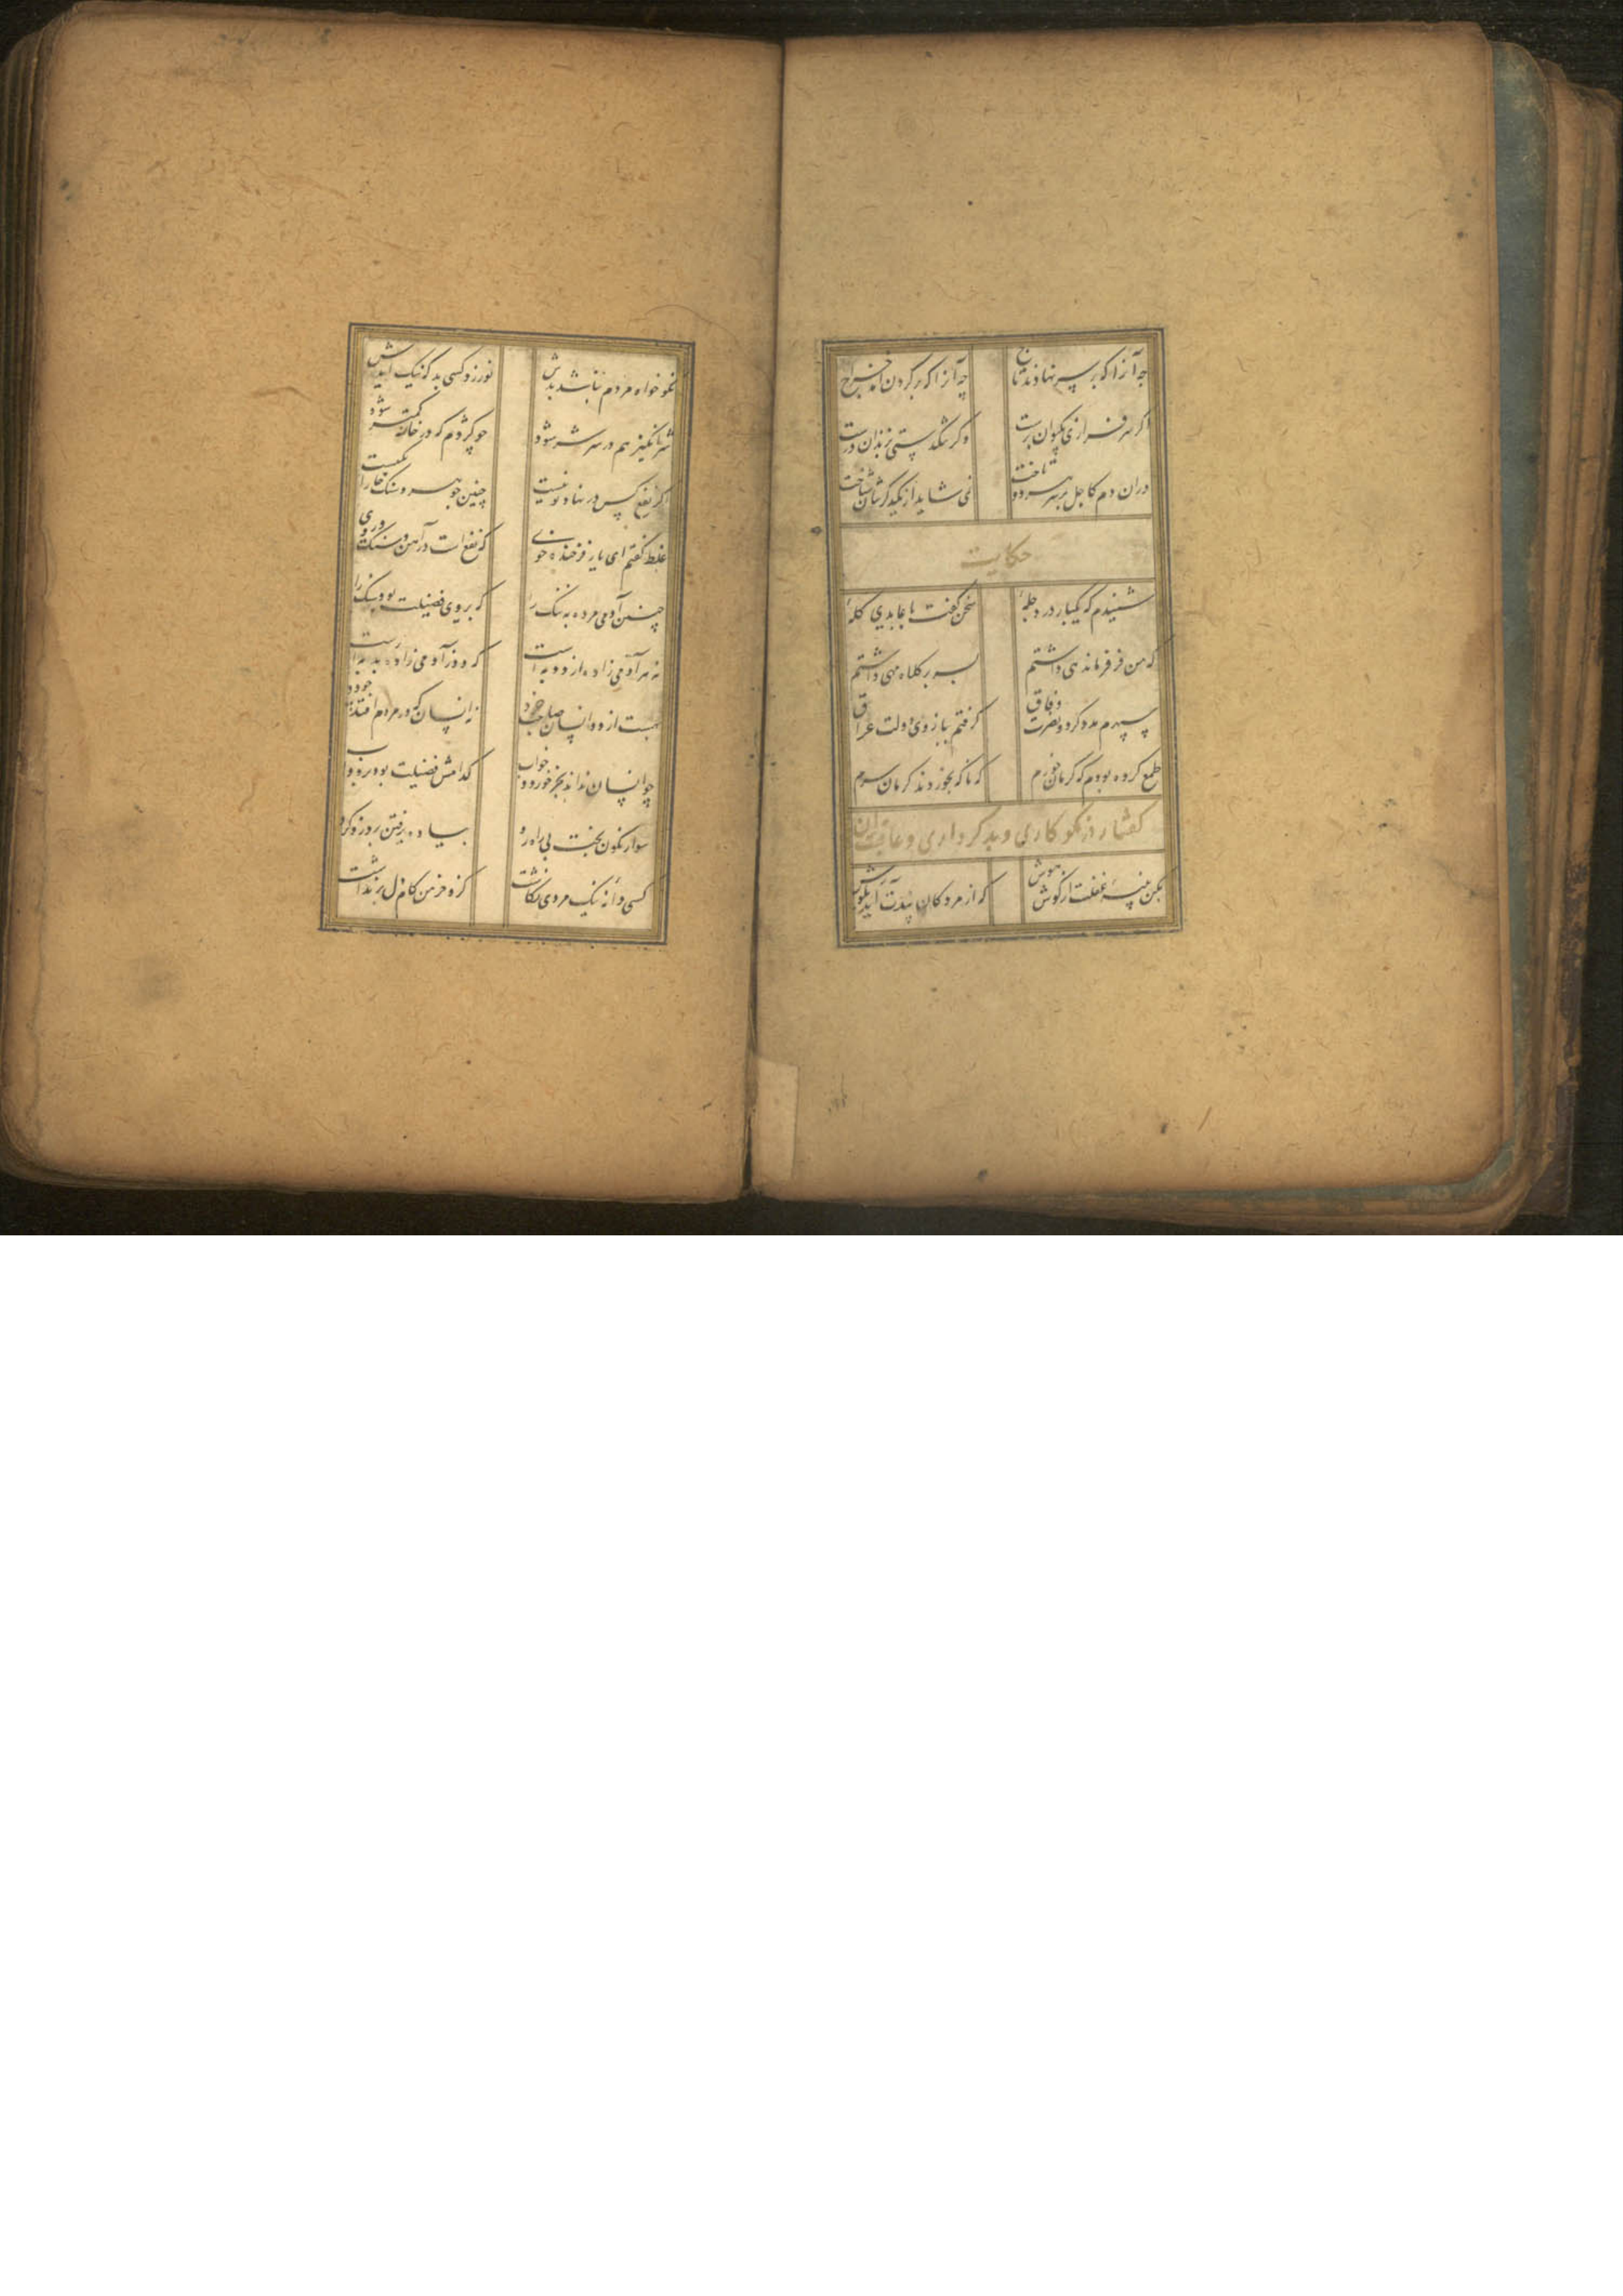 چه آنرا که بر سر نهادند تاج چه آنرا که بر گردن آمد خراج
اگر سرفرازی بکیوان برست وگر تنگدستی بزندان درست
دران دم که اجل بر سر هردو تاخت نمی شاید از یکدگرشان شناخت
حکایت
شنیدم که یکبار در دجلهٔ سخن گفت با عابدی کلهٔ
که من فر فرماندهی داشتم بسر بر کلاه مهی داشتم
سپهرم مدد کرد و نصرت وفاق گرفتم ببازوی دولت عراق
طمع کرده بودم که کرمان خورم که ناگه بخوردند کرمان سرم
گفتار در نکوکاری و بدکرداری و عاقبت آن
بکن پنبهٔ غفلت از گوش هوش که از مردگان پندت آید بگوش
نکوخواه مردم نباشد بدش نورزد کسی بد که نیک آیدش
شرانگیز هم در سر شر شود چو کژدم که در خانه کمتر شود
اگر نفع کس در نهاد تو نیست چنین جوهر و سنگ خارا یکیست
غلط گفتم ای یار فرخنده خوی که نفع است در آهن و سنگ و روی
چنین آدمی مرده به ننگ را که بروی فضیلت بود سنگ را
نه هر آدمی زاده از دد به است که دد ز آدمی زادهٔ بد به است
بهست از دد انسان صاحب خرد نه انسان که در مردم افتد چو دد
چو انسان نداند بجز خورد و خواب کدامش فضیلت بود بر دواب
سوار نگون بخت بی راه رو پیاده برفتن برد زو گرو
کسی دانهٔ نیک مردی نکاشت کزو خرمن کام دل برنداشت